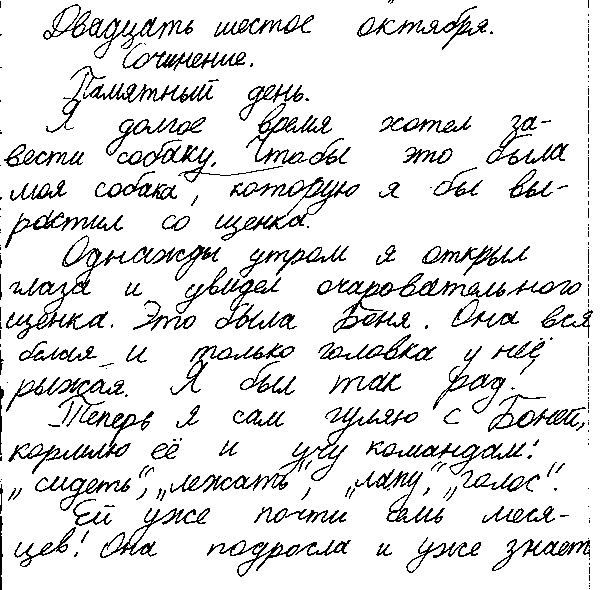 Двадцать шестое октября.
Сочинение.
Памятный день.
Я долгое время хотел за-
вести собаку. Чтобы это была
моя собака, которую я бы вы-
ростил со щенка.
Однажды утром я открыл
глаза и увидел очаровательного
щенка. Это была Боня. Она вся
белая и только головка у неё
рыжая. Я был так рад!
Теперь я сам гуляю с Боней,
кормлю её и учу командам:
„сидеть“, „лежать“, „лапу“, „голос“.
Ей уже почти семь меся-
цев! Она подросла и уже знает